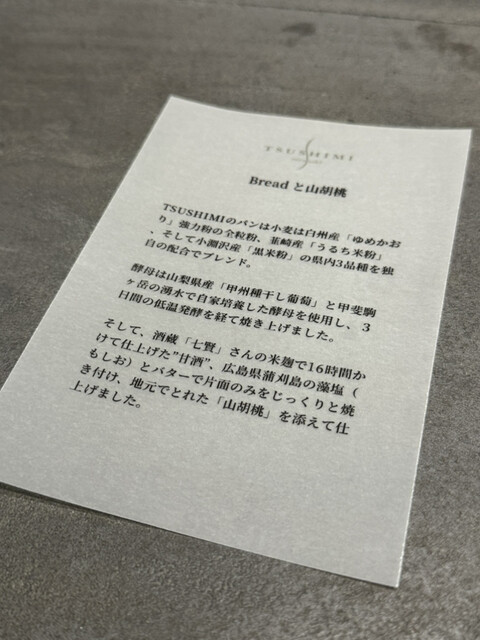 TSUSHIMI
Bread と山胡桃
TSUSHIMIのパンは小麦は白州産「ゆめかお
り」強力粉の全粒粉、韮崎産「うるち米粉」
、そして小淵沢産「黒米粉」の県内3品種を独
自の配合でブレンド。
酵母は山梨県産「甲州種干し葡萄」と甲斐駒
ヶ岳の湧水で自家培養した酵母を使用し、３
日間の低温発酵を経て焼き上げました。
そして、酒蔵「七賢」さんの米麹で16時間か
けて仕上げた"甘酒"、広島県蒲刈島の藻塩（
もしお）とバターで片面のみをじっくりと焼
き付け、地元でとれた「山胡桃」を添えて仕
上げました。